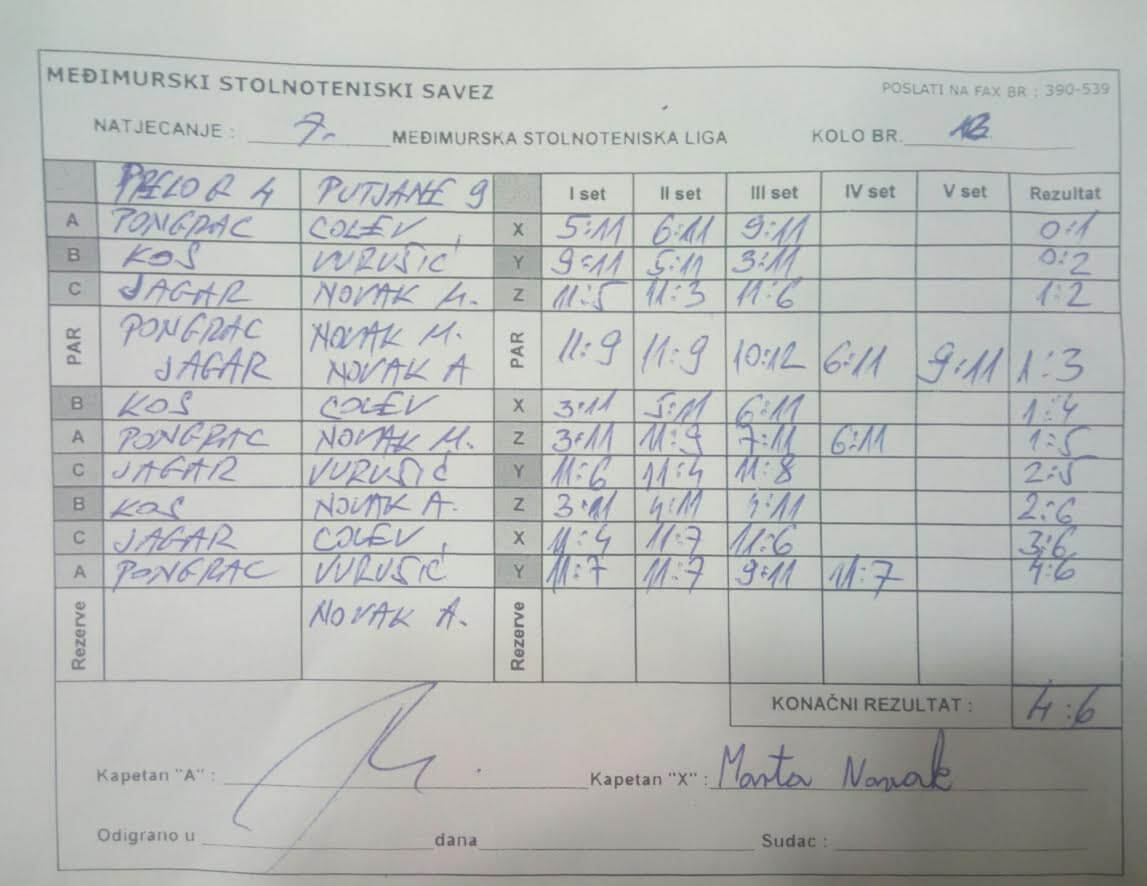 MEĐIMURSKI STOLNOTENISKI SAVEZ
POSLATI NA FAX BR : 390-539
NATJECANJE : 7. MEĐIMURSKA STOLNOTENISKA LIGA KOLO BR.
4 PUTJANE 9 I set II set III set IV set V set Rezultat
A PONGRAC COLEV X 5:11 6:11 9:11 0:1
B KOS VURUŠIĆ Y 9:11 5:11 3:11 0:2
C JAGAR NOVAK M. Z 11:5 11:3 11:6 1:2
PAR PONGRAC JAGAR NOVAK M. NOVAK A PAR 11:9 11:9 10:12 6:11 9:11 1:3
B KOS COLEV X 3:11 5:11 6:11 1:4
A PONGRAC NOVAK M. Z 3:11 11:9 7:11 6:11 1:5
C JAGAR VURUŠIĆ Y 11:6 11:4 11:8 2:5
B KOS NOVAK A. Z 3:11 4:11 4:11 2:6
C JAGAR COLEV X 11:4 11:7 11:6 3:6
A PONGRAC VURUŠIĆ Y 11:7 11:7 9:11 11:7 4:6
Rezerve NOVAK A. Rezerve
KONAČNI REZULTAT : 4:6
Kapetan "A" : Kapetan "X" : Marta Novak
Odigrano u dana Sudac :